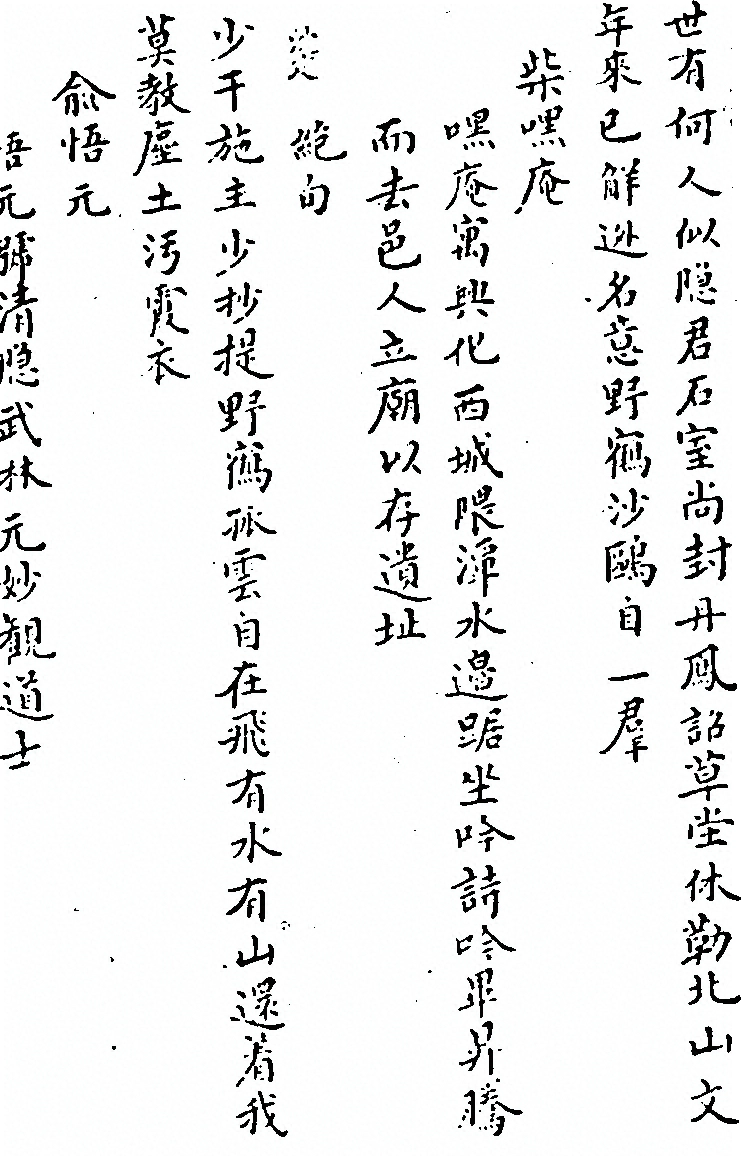 世有何人似隠君石室尚封丹鳳詔草堂休勒北山文
年來已解逃名意野鶴沙鷗自一羣
柴嘿庵
嘿庵寓興化西城隈漳水邉踞坐吟詩吟畢昇騰
而去邑人立廟以存遺址
絶句
少干施主少抄提野鶴孤雲自在飛有水有山還着我
莫教塵土污霞衣
俞悟元
悟元號清隠武林元妙観道士